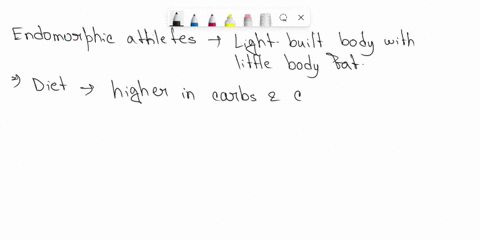 Endomorphic athletes → Light built body with
little body fat.
⇒ Diet → higher in carbs & c